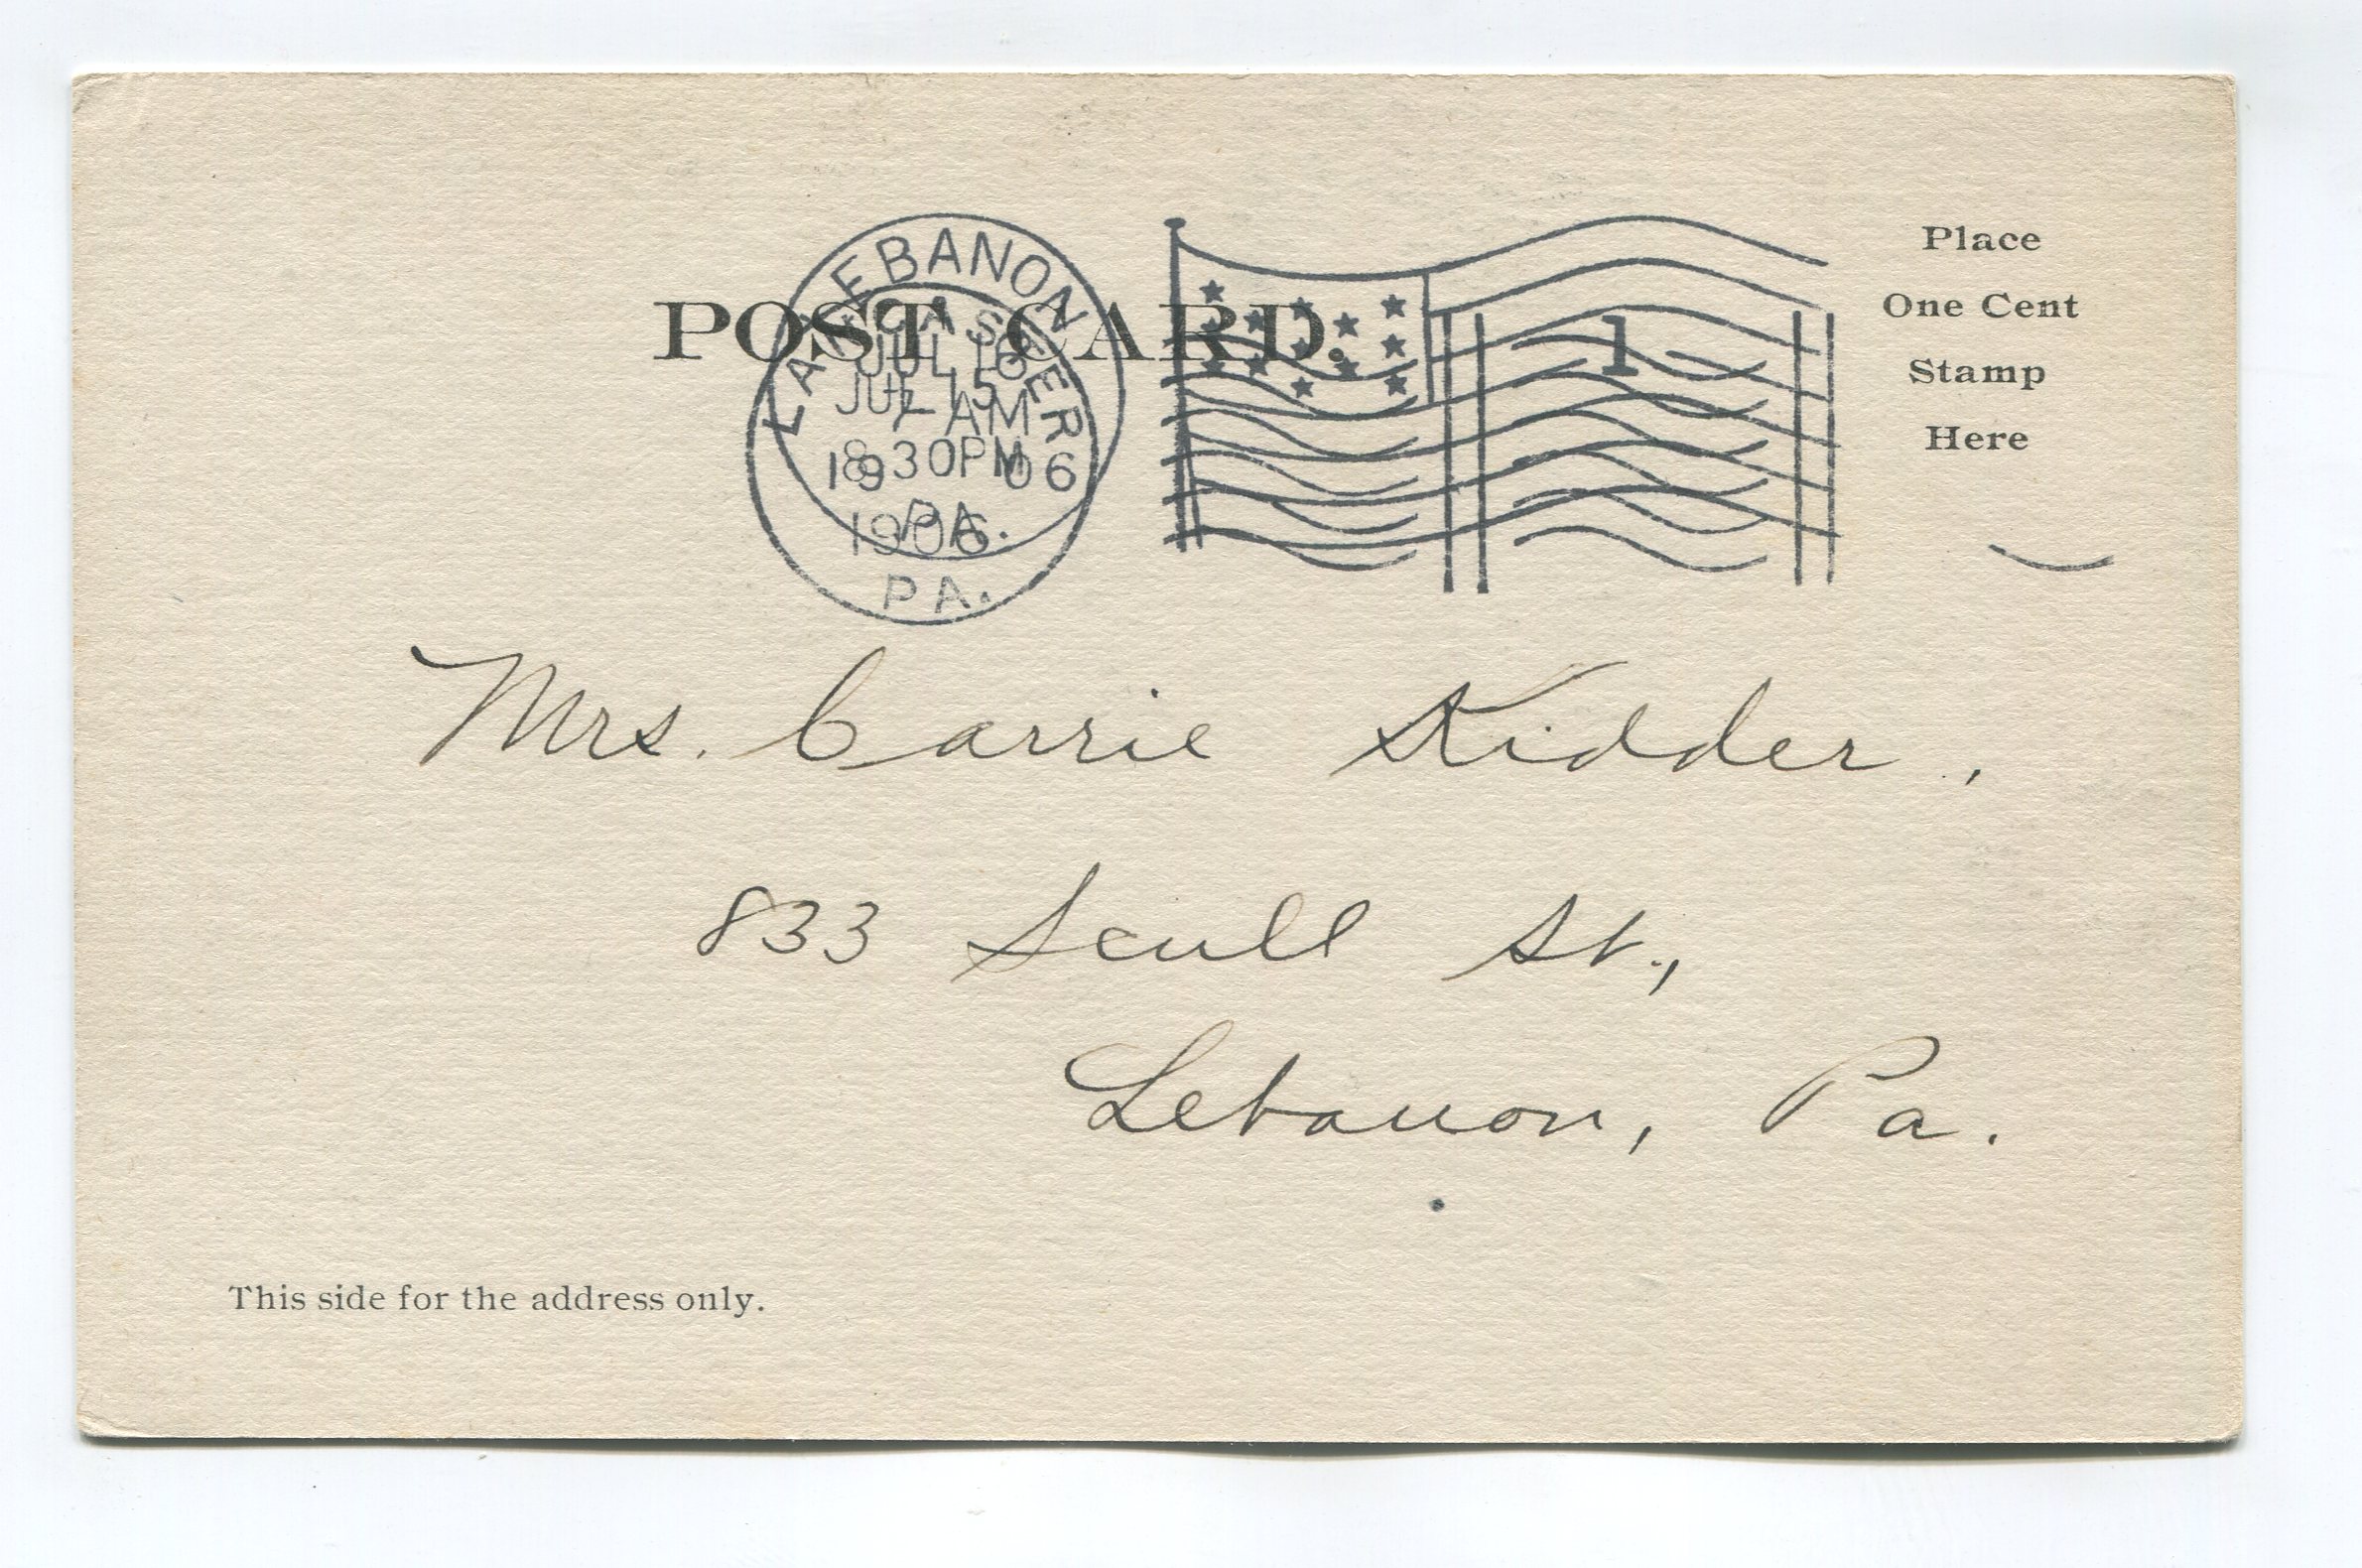 POST CARD.
LEBANON
JUL 16
7 AM
19 06
PA.
LANCASTER
JUL 15
8 30PM
1906
PA.
1
Place
One Cent
Stamp
Here
Mrs. Carrie Kidder,
833 Scull St.,
Lebanon, Pa.
This side for the address only.